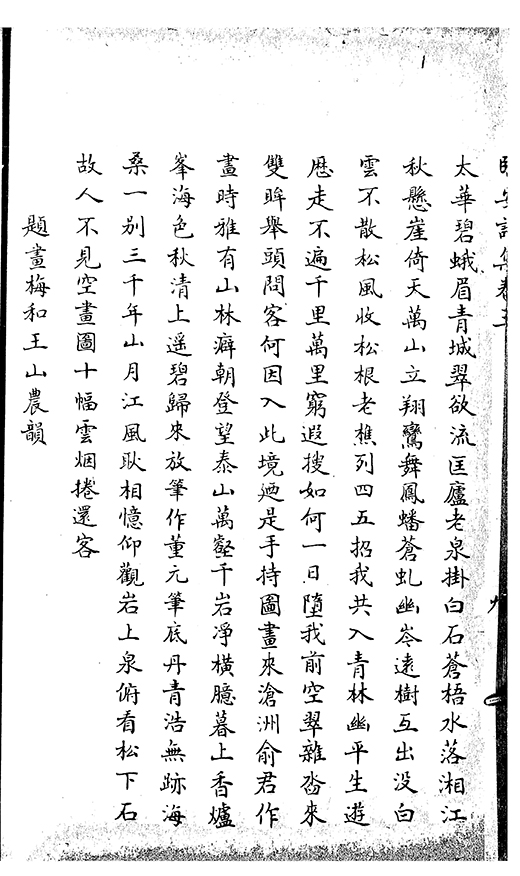 詩集卷五
九
太華碧蛾眉青城翠欲流匡廬老泉掛白石蒼梧水落湘江
秋懸崖倚天萬山立翔鸞舞鳳蟠蒼虬幽岑遠樹互出没白
雲不散松風收松根老樵列四五招我共入青林幽平生遊
歷走不遍千里萬里窮遐搜如何一日墮我前空翠雜沓來
雙眸舉頭問客何因入此境廼是手持圖畫來滄洲俞君作
畫時雅有山林癖朝登望泰山萬壑千岩凈橫臆暮上香爐
峯海色秋清上遥碧歸來放筆作董元筆底丹青浩無跡海
桑一别三千年山月江風耿相憶仰觀岩上泉俯看松下石
故人不見空畫圖十幅雲烟捲還客
題畫梅和王山農韻